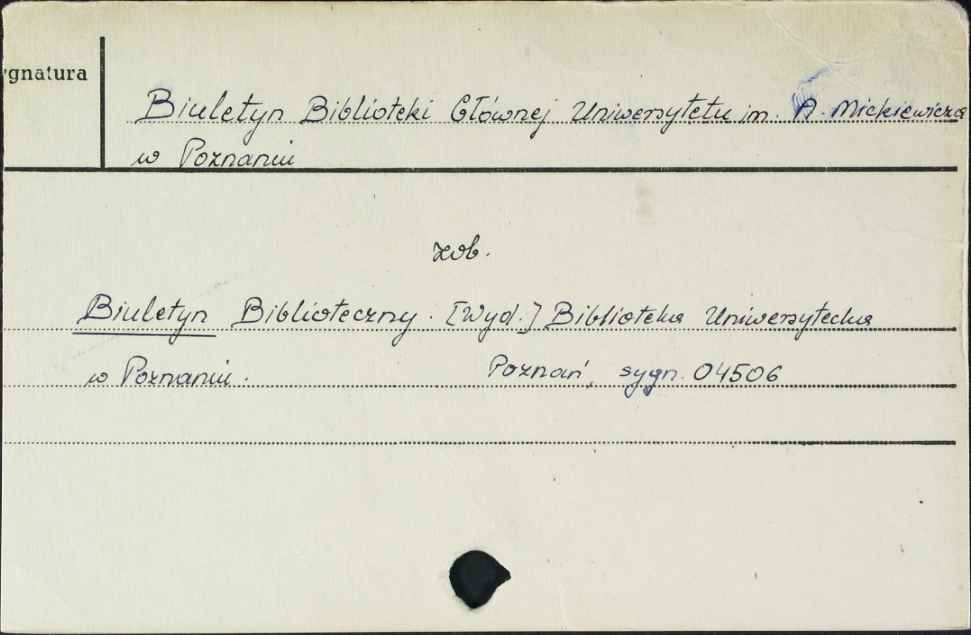 ygnatura
Biuletyn Biblioteki Głównej Uniwersytetu im. A. Mickiewicza
w Poznaniu
zob.
Biuletyn Biblioteczny. [Wyd.] Biblioteka Uniwersytecka
w Poznaniu. Poznań, sygn. 04506